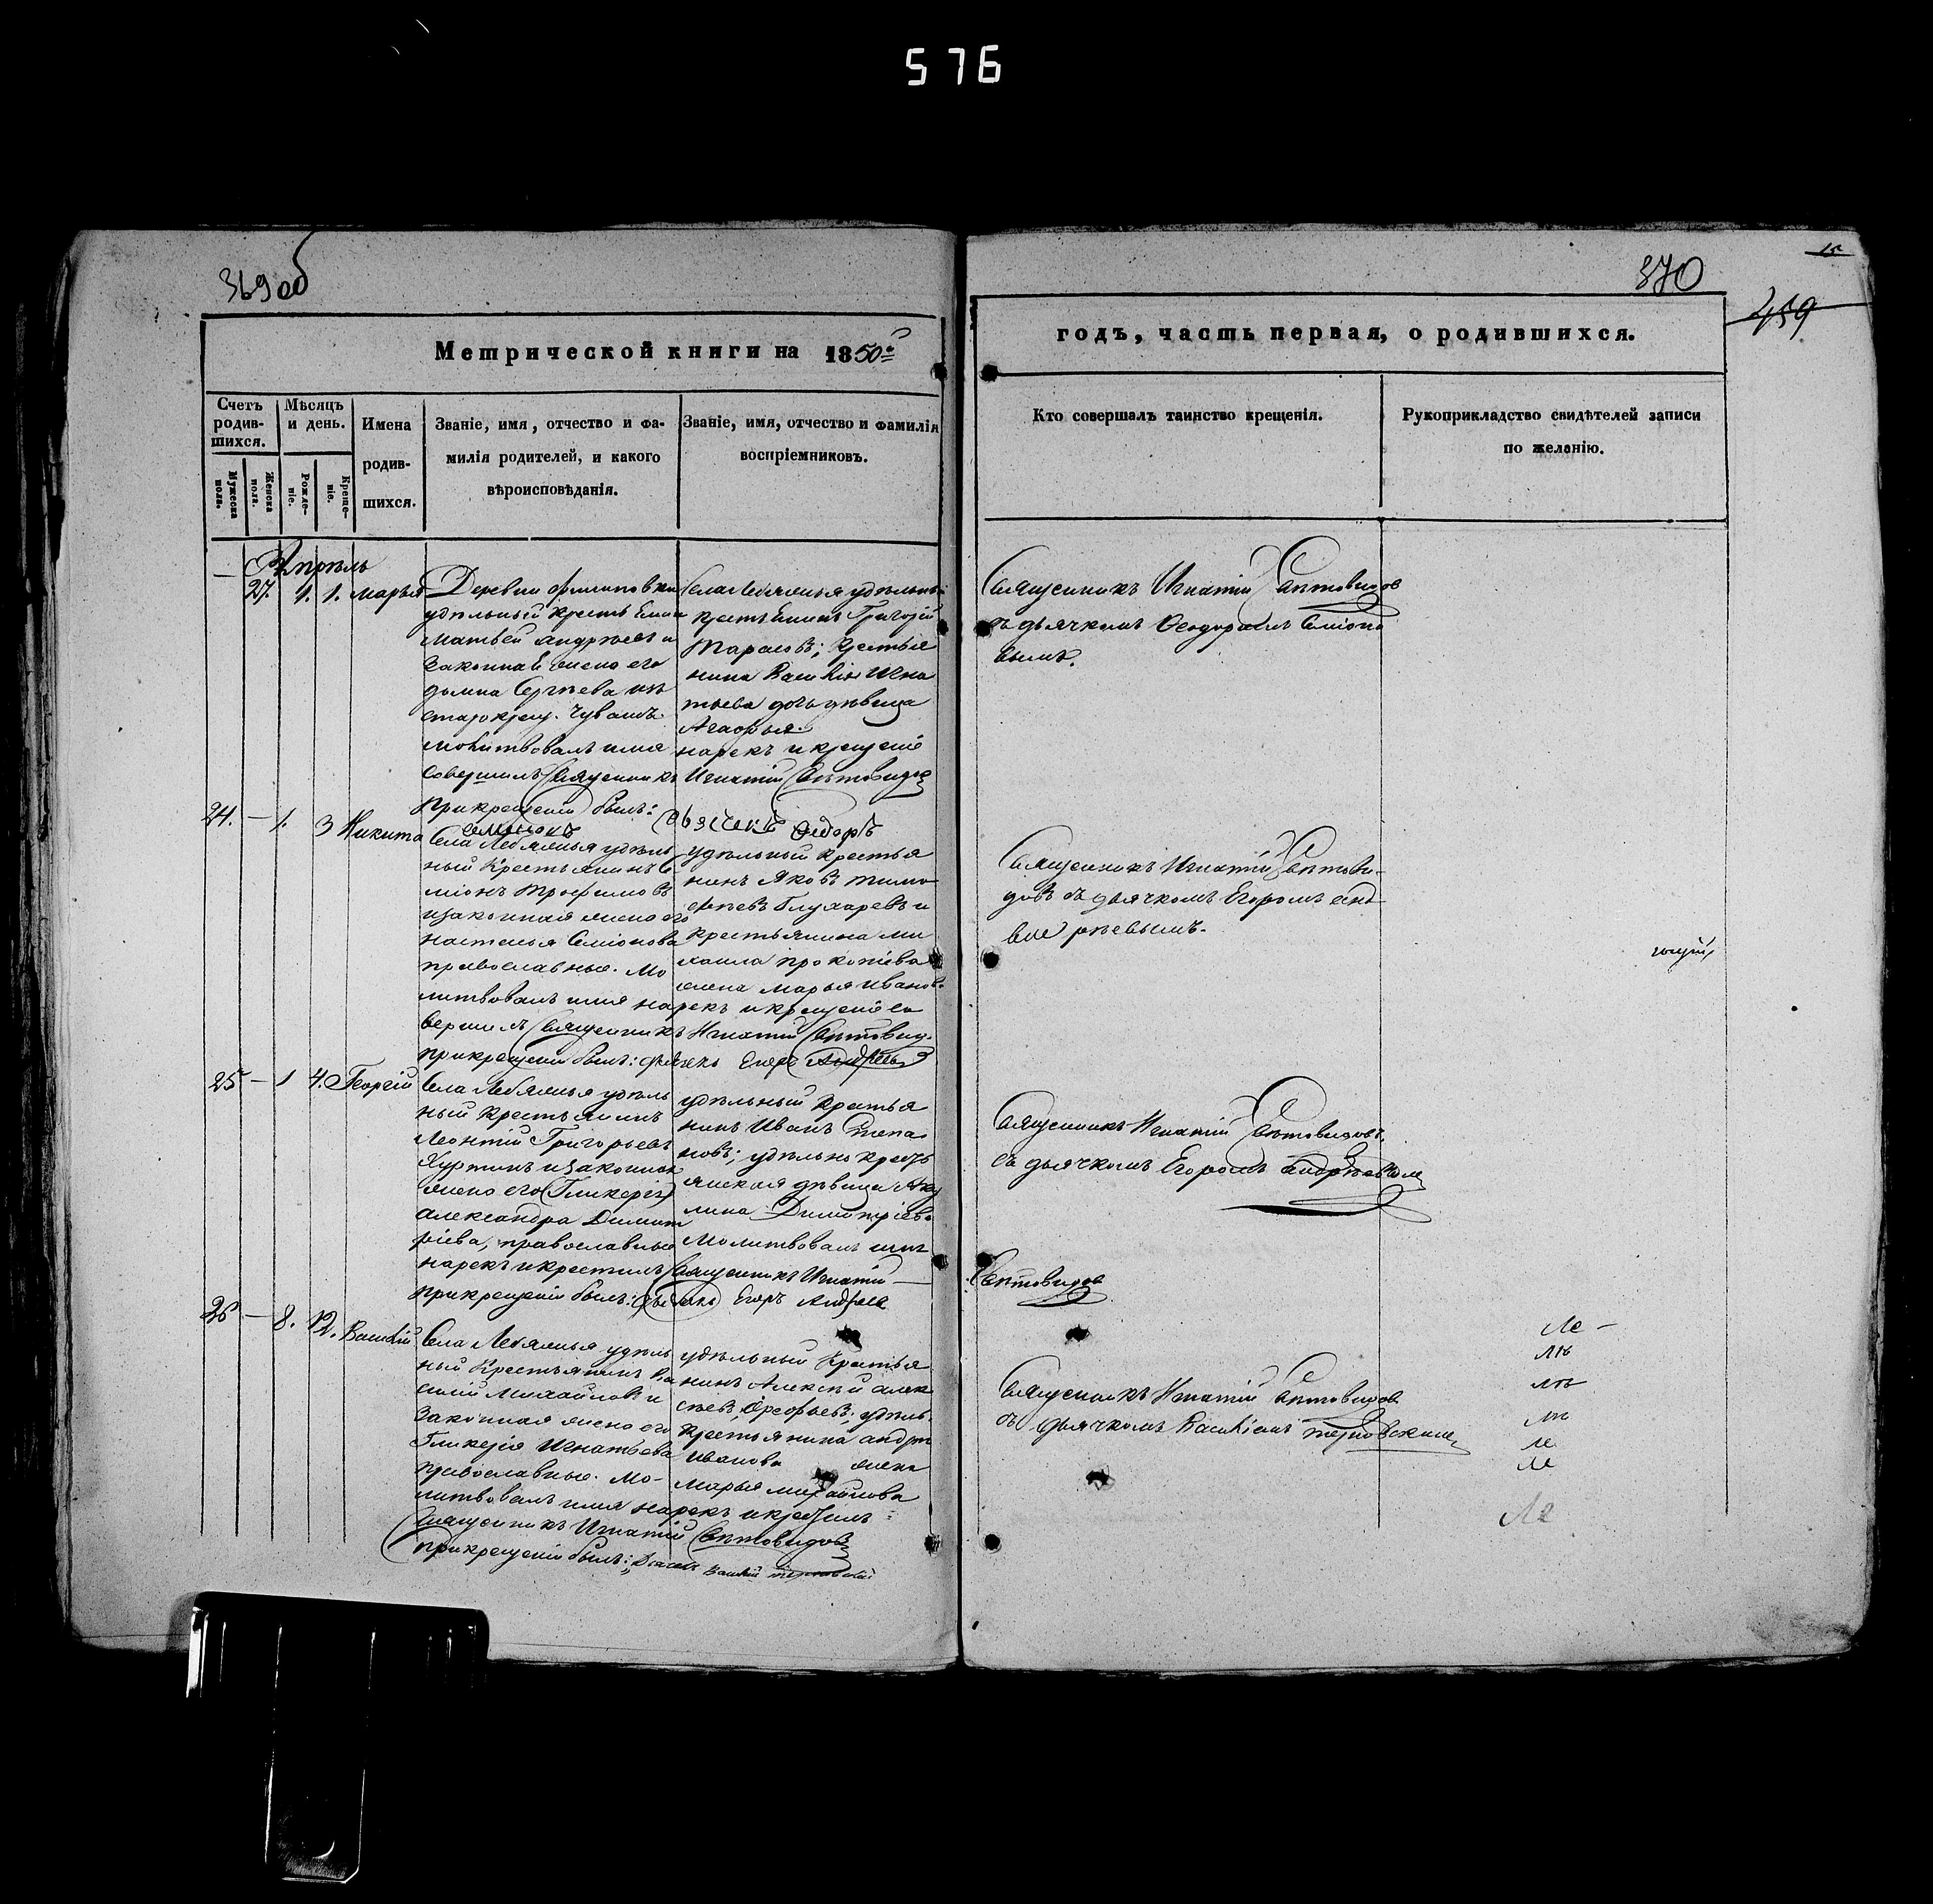 576
369об
370
459
Метрической книги на 1850й
годъ, часть первая, о родившихся.
Счетъ родив-шихся.
Мужеска пола.
Женска пола.
Мѣсяцъ и день.
Рожде-ніе.
Креще-ніе.
Имена
родив-
шихся.
Званіе, имя, отчество и фа-
милія родителей, и какого
вѣроисповѣданія.
Званіе, имя, отчество и фамилія
воспріемниковъ.
Кто совершалъ таинство крещенія.
Рукоприкладство свидѣтелей записи
по желанію.
Апрѣль
27. 1. 1. Марья
Деревни Филиповки
удѣльный крестьянинъ
Матвей Андреевъ и
законная жена его
Домна Сергѣева изъ
старокрещ. Чувашъ
молитвовалъ имя
совершилъ Священникъ
При крещеніи былъ:
Села Лебяжья удѣльный
крестьянинъ Григорій
Тарасовъ; крестья
нина Василія Игна
тьева дочь дѣвица
Агафья.
нарекъ и крещеніе
Игнатій Свѣтовидовъ
Дьячекъ Федоръ
Семіоновъ
Священникъ Игнатій Свѣтовидов
съ дьячкомъ Феодоромъ Семіоно
вымъ.
24. — 1. 3 Никита
Села Лебяжья удѣль
ный крестьянинъ Се
міонъ Трофимовъ
и законная жена его
Настасья Семіонова
православные. Мо
литвовалъ имя нарекъ и крещеніе со
вершилъ Священникъ Игнатій Свѣтовид.
при крещеніи былъ: дьячекъ Егоръ Андреевъ
удѣльный крестья
нинъ Яковъ Тимо
фѣевъ Глухаревъ и
крестьянина Ми
хаила Прокопіева
жена Марья Иванов.
Священникъ Игнатій Свѣтови-
довъ съ дьячкомъ Егоромъ Анд
рѣевымъ.
25 — 1 4. Георгій
Села Лебяжья удѣль
ный крестьянинъ
Леонтій Григорьевъ
Куртинъ и законная
жена его (Гликерія)
Александра Димит
ріева, православные
нарекъ и крестилъ Священникъ Игнатій —
При крещеніи былъ: дьячекъ Егоръ Андреевъ
удѣльный крестья
нинъ Иванъ Степа
новъ; удѣльно крест
янская дѣвица Аку
лина Димитріева
Молитвовалъ имя
Священникъ Игнатій Свѣтовидовъ
съ дьячкомъ Егоромъ Андрѣевымъ
Свѣтовидов
26 — 8. 12. Василій
Села Лебяжья удѣль
ный Крестьянинъ Ва
силій Михайловъ и
законная жена его
Гликерія Игнатьева
православные. Мо-
литвовалъ имя нарекъ и крестилъ
Священникъ Игнатій Свѣтовидовъ
при крещеніи былъ: Дьячекъ Василій Терновскій
удѣльный крестья
нинъ Алексѣй Алек
сѣевъ Арефьевъ; удѣль.
крестьянина Андрея
Иванова жена
Марья Михайлова
Священникъ Игнатій Свѣтовидов
съ дьячкомъ Василіемъ Терновскимъ